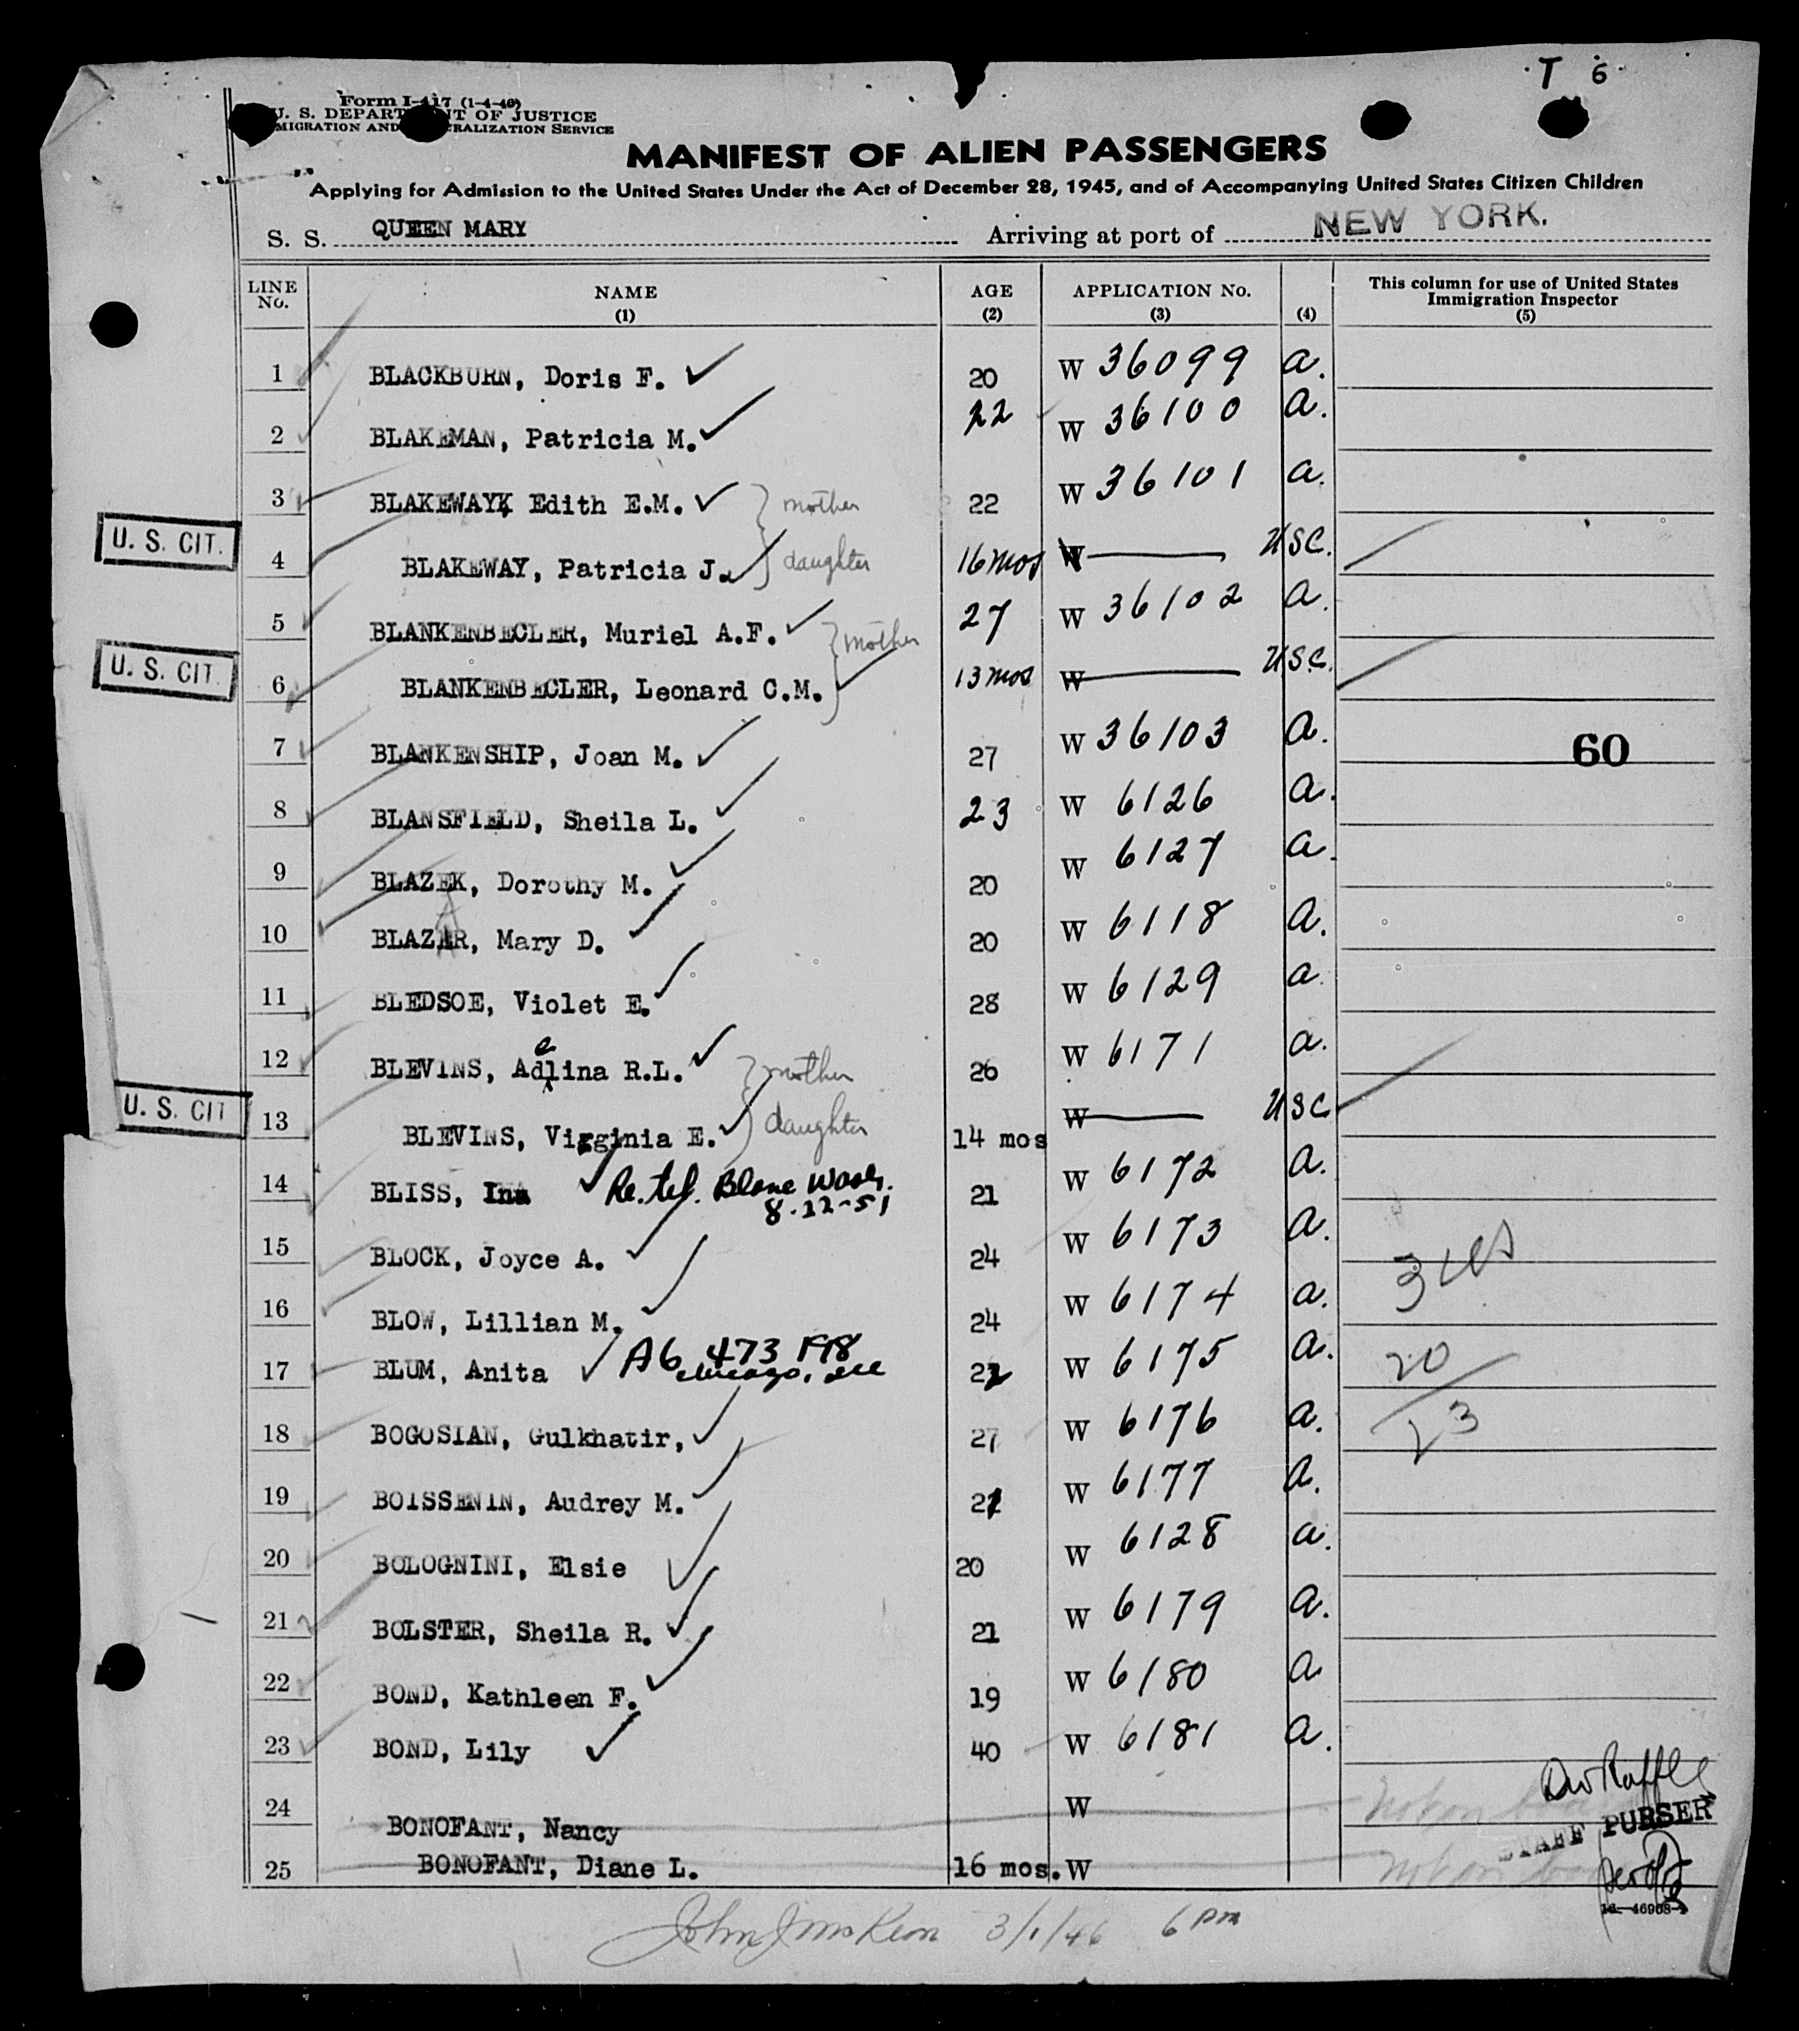 T 6
Form I-417 (1-4-46)
U. S. DEPARTMENT OF JUSTICE
IMMIGRATION AND NATURALIZATION SERVICE
MANIFEST OF ALIEN PASSENGERS
Applying for Admission to the United States Under the Act of December 28, 1945, and of Accompanying United States Citizen Children
S. S. QUEEN MARY Arriving at port of NEW YORK.
LINE No. NAME (1) AGE (2) APPLICATION No. (3) (4) This column for use of United States Immigration Inspector (5)
1 BLACKBURN, Doris F. 20 W 36099 a.
2 BLAKEMAN, Patricia M. 22 W 36100 a.
3 BLAKEWAY, Edith E.M. mother 22 W 36101 a.
U. S. CIT. 4 BLAKEWAY, Patricia J. daughter 16 mos W USC.
5 BLANKENBECLER, Muriel A.F. mother 27 W 36102 a.
U. S. CIT. 6 BLANKENBECLER, Leonard C.M. 13 mos W USC.
7 BLANKENSHIP, Joan M. 27 W 36103 a. 60
8 BLANSFIELD, Sheila L. 23 W 6126 a.
9 BLAZEK, Dorothy M. 20 W 6127 a.
10 BLAZAR, Mary D. A 20 W 6118 a.
11 BLEDSOE, Violet E. 28 W 6129 a.
12 BLEVINS, Adelina R.L. mother 26 W 6171 a.
U. S. CIT 13 BLEVINS, Virginia E. daughter 14 mos W USC
14 BLISS, Ina Re. tel. 8-22-51 21 W 6172 a.
15 BLOCK, Joyce A. 24 W 6173 a. 3 US
16 BLOW, Lillian M. 24 W 6174 a.
17 BLUM, Anita A6 473 198 Chicago, Ill 22 W 6175 a. 20
18 BOGOSIAN, Gulkhatir, 27 W 6176 a. 23
19 BOISSENIN, Audrey M. 21 W 6177 a.
20 BOLOGNINI, Elsie 20 W 6128 a.
21 BOLSTER, Sheila R. 21 W 6179 a.
22 BOND, Kathleen F. 19 W 6180 a
23 BOND, Lily 40 W 6181 a.
24 BONOFANT, Nancy W Not on board
STAFF PURSER
25 BONOFANT, Diane L. 16 mos. W Not on board
16-46908-1
3/1/46 6 pm